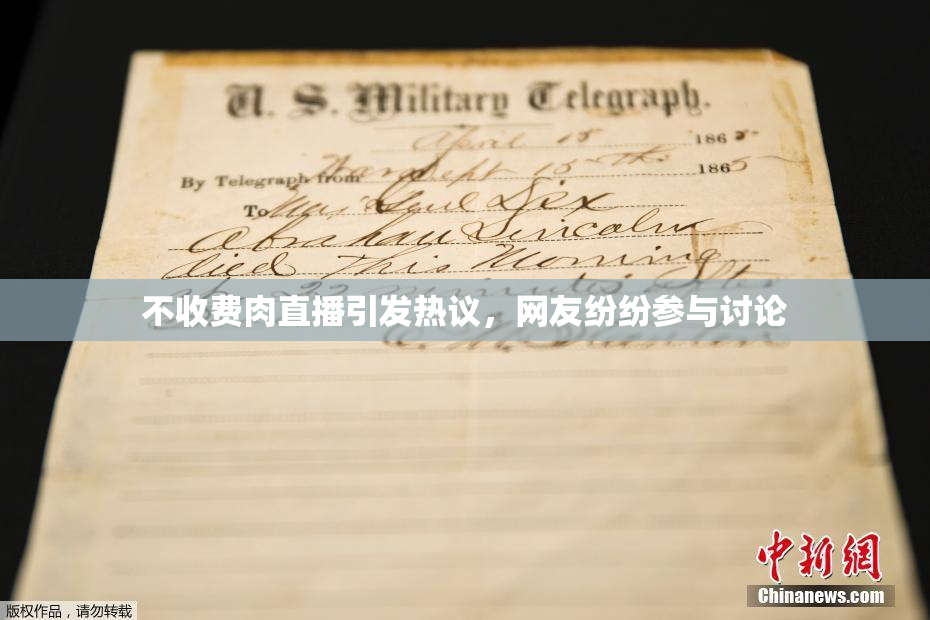 U. S. Military Telegraph.
April 15 1865
By Telegraph from War Dept 15th 1865
To Maj Genl Dix
Abraham Lincoln
died This Morning
22 minutes after
不收费肉直播引发热议，网友纷纷参与讨论
E. M. Stanton
中新网
Chinanews.com
版权作品，请勿转载